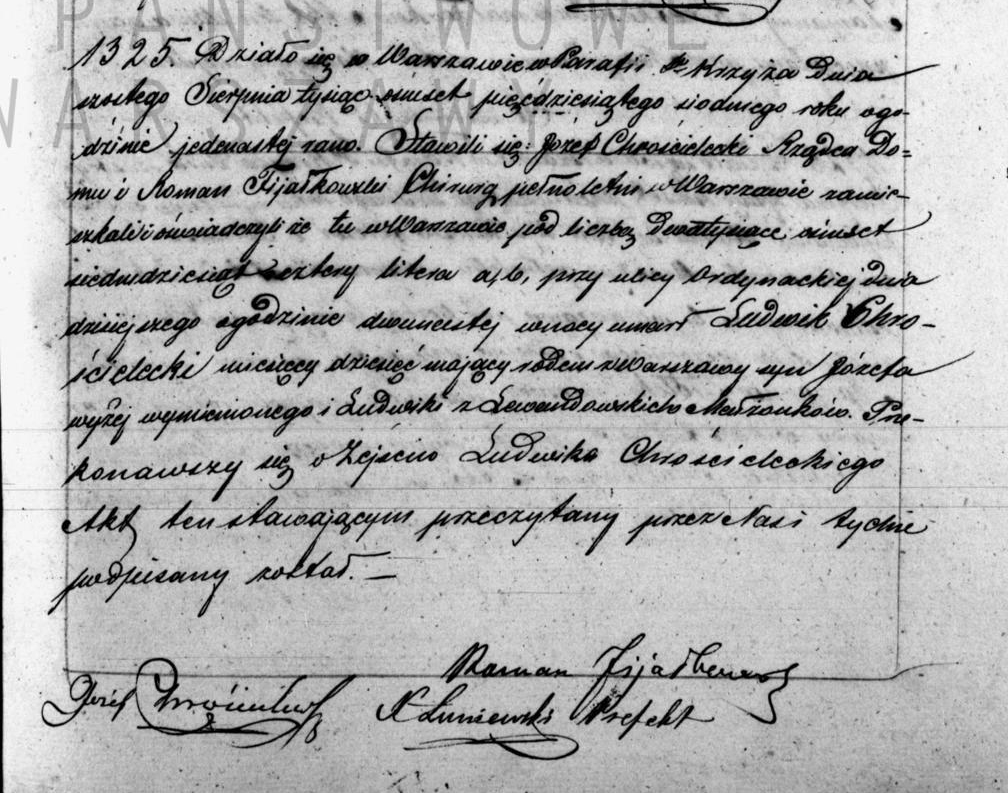 PAŃSTWOWE
WARSZAWY
1325. Działo się w Warszawie w Parafii Sgo Krzyża Dnia
szóstego Sierpnia tysiąc ośmset pięćdziesiątego siódmego roku ogo-
dzinie jedenastej rano. Stawili się: Józef Chrościelecki Rządca Do=
mu i Roman Fijałkowski Chirurg pełnoletni w Warszawie zamie-
szkali i oświadczyli że tu w Warszawie pod liczbą Dwatysiące ośmset
siedmdziesiąt cztery litera a/b, przy ulicy Ordynackiej dnia
dzisiejszego ogodzinie dwunastej wnocy umarł Ludwik Chro-
ścielecki miesięcy dziesięć mający rodem z Warszawy syn Józefa
wyżej wymienionego i Ludwiki z Lewandowskich Małżonków. Prze-
konawszy się o Zejściu Ludwika Chrościeleckiego
Akt ten stawającym przeczytany przez Nas i tychże
podpisany został. —
Roman Fijałkowski
Józef Chrościelecki N Łuniewski Prefekt